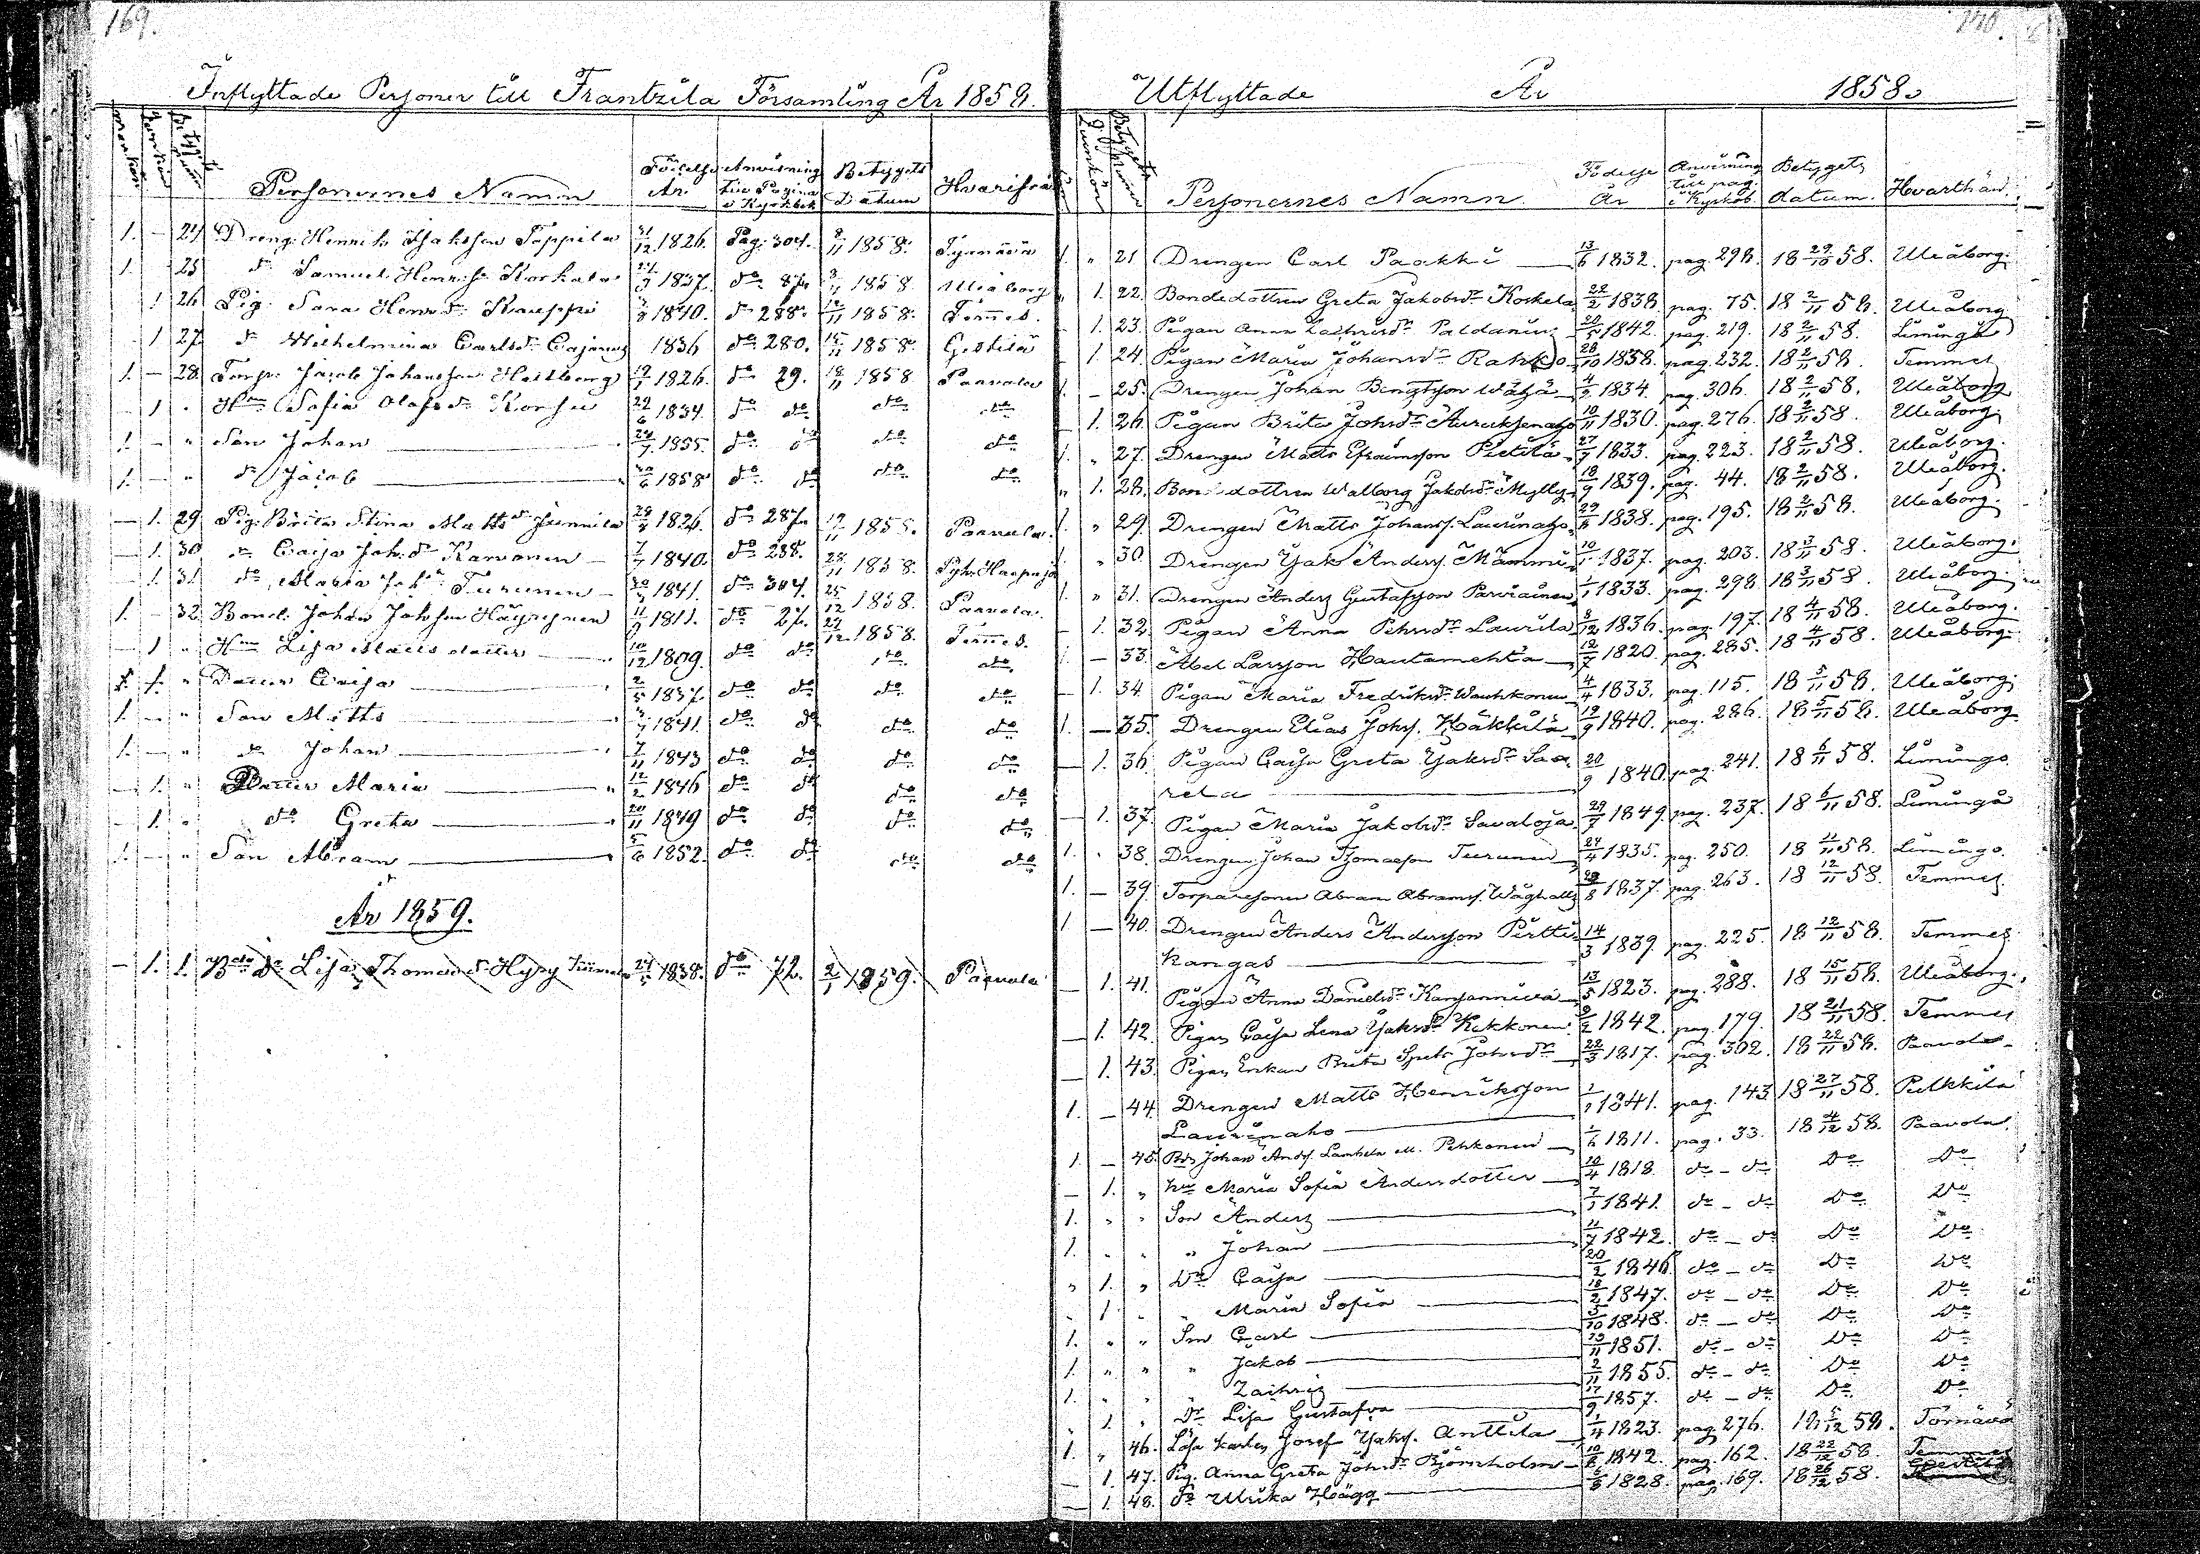 169.
Inflyttade Personer till Frantzila Församling År 1858.
mankön
qvinkön
Betygets num
Personernes Namn
Födelse År
Anvisning till Pagina i Kyrkbok
Betygets Datum
Hvarifrån
1. – 24 Dreng. Henrik Jakobsson Toppila 31/12 1826. Pag. 304. 8/11 1858. Tyrnävä
1. – 25 do Samuel Henrikss. Korkala 1837. do 87. 1858. Uleåborg
– 1 26 Pig. Sara Henrsdr Kauppi 1840. do 288. 12/11 1858. Temmes.
1 27 do Wilhelmina Carlsdr Cajanus 1836 do 280. 15/11 1858. Gestilä
1. – 28. Torp. Jacob Johansson Hallberg 1826. do 29. 18/11 1858 Paavola
– 1 " Hu Sofia Olofsdr 29/6 1834. do do do do
1. – " Son Johan 1855. do do do do
1. – " do Jacob 1858 do do do do
– 1. 29 Pig. Brita Stina Mattsdr Junnila 1826. do 287. 19/11 1858. Paavola.
– 1. 30 do Caisa Joh.dr Karvonen 1840. do 238. 1858. Pyhä Haapajä
– 1. 31. do Maria Turunen 1841. do 304. 25/12 1858. Paavola.
1. – 32 Bond. Johan Johsson 1811. do 27. 1858. Temmes.
– 1 " Hu Lisa Mattsdotter 10/12 1809. do do do do
" Dotter Caisa 2/5 1837. do do do do
1. – " Son Matts 1841. do do do do
1. – " do Johan 7/11 1843 do do do do
– 1. " Dotter Maria 12/2 1846 do do do do
– 1. " do Greta 20/11 1849 do do do do
1. – " Son Abram 5/6 1852. do do do do
År 1859.
– 1. 1. Lisa Thomasdr Hyry 1838. do 72. 2/1 1859. Paavola
170.
Utflyttade År 1858.
Qvinkön
Betygets num
Personernes Namn
Födelse År
Anvisning till pag. i Kyrkob.
Betygets datum.
Hvarthän
1. " 21 Drengen Carl Paakki 13/6 1832. pag. 298. 18 29/10 58. Uleåborg.
" 1. 22. Bondedottren Greta Jakobsdr Koskela 22/2 1838. pag. 75. 18 2/11 58. Uleåborg
– 1. 23. Pigan Anna Zachrisdr Paldanius 20/5 1842. pag. 219. 18 2/11 58. Limingo
– 1. 24. Pigan Maria Johansdr Rahko 28/10 1838. pag. 232. 18 2/11 58. Temmes
1. – 25. Drengen Johan Bengtsson Wäyä 4/2 1834. pag. 306. 18 2/11 58. Uleåborg
– 1. 26. Pigan Brita Johsdr 10/11 1830. pag. 276. 18 2/11 58. Uleåborg.
1. " 27. Drengen Matts Efraimsson Pietilä 27/7 1833. pag. 223. 18 2/11 58. Uleåborg.
" 1. 28. Bondedottren Walborg Jakobsdr Mylly 18/9 1839. pag. 44. 18 2/11 58. Uleåborg.
1. " 29. Drengen Matts Johanss. Laurinaho 1838. pag. 195. 18 2/11 58. Uleåborg.
" 30. Drengen Jakob Anderss. Mämmi 1837. pag. 203. 18 3/11 58. Uleåborg.
1. " 31. Drengen Anders Gustafsson Parviainen 1/1 1833. pag. 298. 18 3/11 58. Uleåborg.
– 1. 32. Pigan Anna Pehrsdr Laurila 3/12 1836. pag. 197. 18 4/11 58. Uleåborg.
1. – 33. Abel Larsson Hautamehtä 12/7 1820. pag. 285. 18 4/11 58. Uleåborg.
– 1. 34. Pigan Maria Fredriksdr Wauhkonen 4/4 1833. pag. 115. 18 5/11 58. Uleåborg.
1. – 35. Drengen Elias Johss. Häkkilä 19/9 1840. pag. 286. 18 5/11 58. Uleåborg
– 1. 36. Pigan Caisa Greta Jaksdr Saa
rela 20/9 1840. pag. 241. 18 6/11 58. Limingo
– 1. 37. Pigan Maria Jakobsdr Savaloja 29/7 1849. pag. 237. 18 6/11 58. Limingo
1. " 38. Drengen Johan Thomasson Turunen 24/4 1835. pag. 250. 18 11/11 58. Limingo.
1. – 39. Torparesonen Abram Abramss. 1837. pag. 263. 18 12/11 58. Temmes.
1 – 40. Drengen Anders Andersson Pertti
kangas 14/3 1839. pag. 225. 18 12/11 58. Temmes
– 1. 41. Pigan Anna Danielsdr 13/5 1823. pag. 288. 18 15/11 58. Uleåborg.
– 1. 42. Pigan Caisa Lena Jaksdr Kekkonen 2/2 1842. pag. 179. 18 21/11 58. Temmes
– 1. 43. Pigan Enkan Brita Johsdr 22/3 1817. pag. 302. 18 22/11 58. Paavola
1. – 44. Drengen Matts Henriksson
Laurinaho 1/1 1841. pag. 143 18 27/11 58. Pulkkila
1. – 45. Bd Johan Ands. Lamhela M. Pehkonen 1/6 1811. pag. 33. 18 4/12 58. Paavola.
– 1. " hu Maria Sofia Andersdotter 10/4 1818. do – do Do Do
1. " " Son Anders 7/1 1841. do – do Do Do
1. " " " Johan 11/7 1842. do – do Do Do
" 1. " Dr Caisa 20/2 1846. do – do Do Do
" 1 " Maria Sofia 18/2 1847. do – do Do Do
1. " " Son Carl 5/10 1848. do – do Do Do
1. " " " Jakob 13/11 1851. do – do Do Do
1. " " " Zachris 2/11 1855. do – do Do Do
" 1. " Dr Lisa Gustafva 17/9 1857. do – do Do Do
1. " 46. Lösa karlen Josef Jaks. Anttila 1/4 1823. pag. 276. 18 5/12 58. Törnävä
– 1. 47. Pig. Anna Greta Johsdr Björnholm 1842. pag. 162. 18 22/12 58. Temmes
– 1. 48. do Ulrika Hägg 1828. pag. 169. 18 26/12 58.